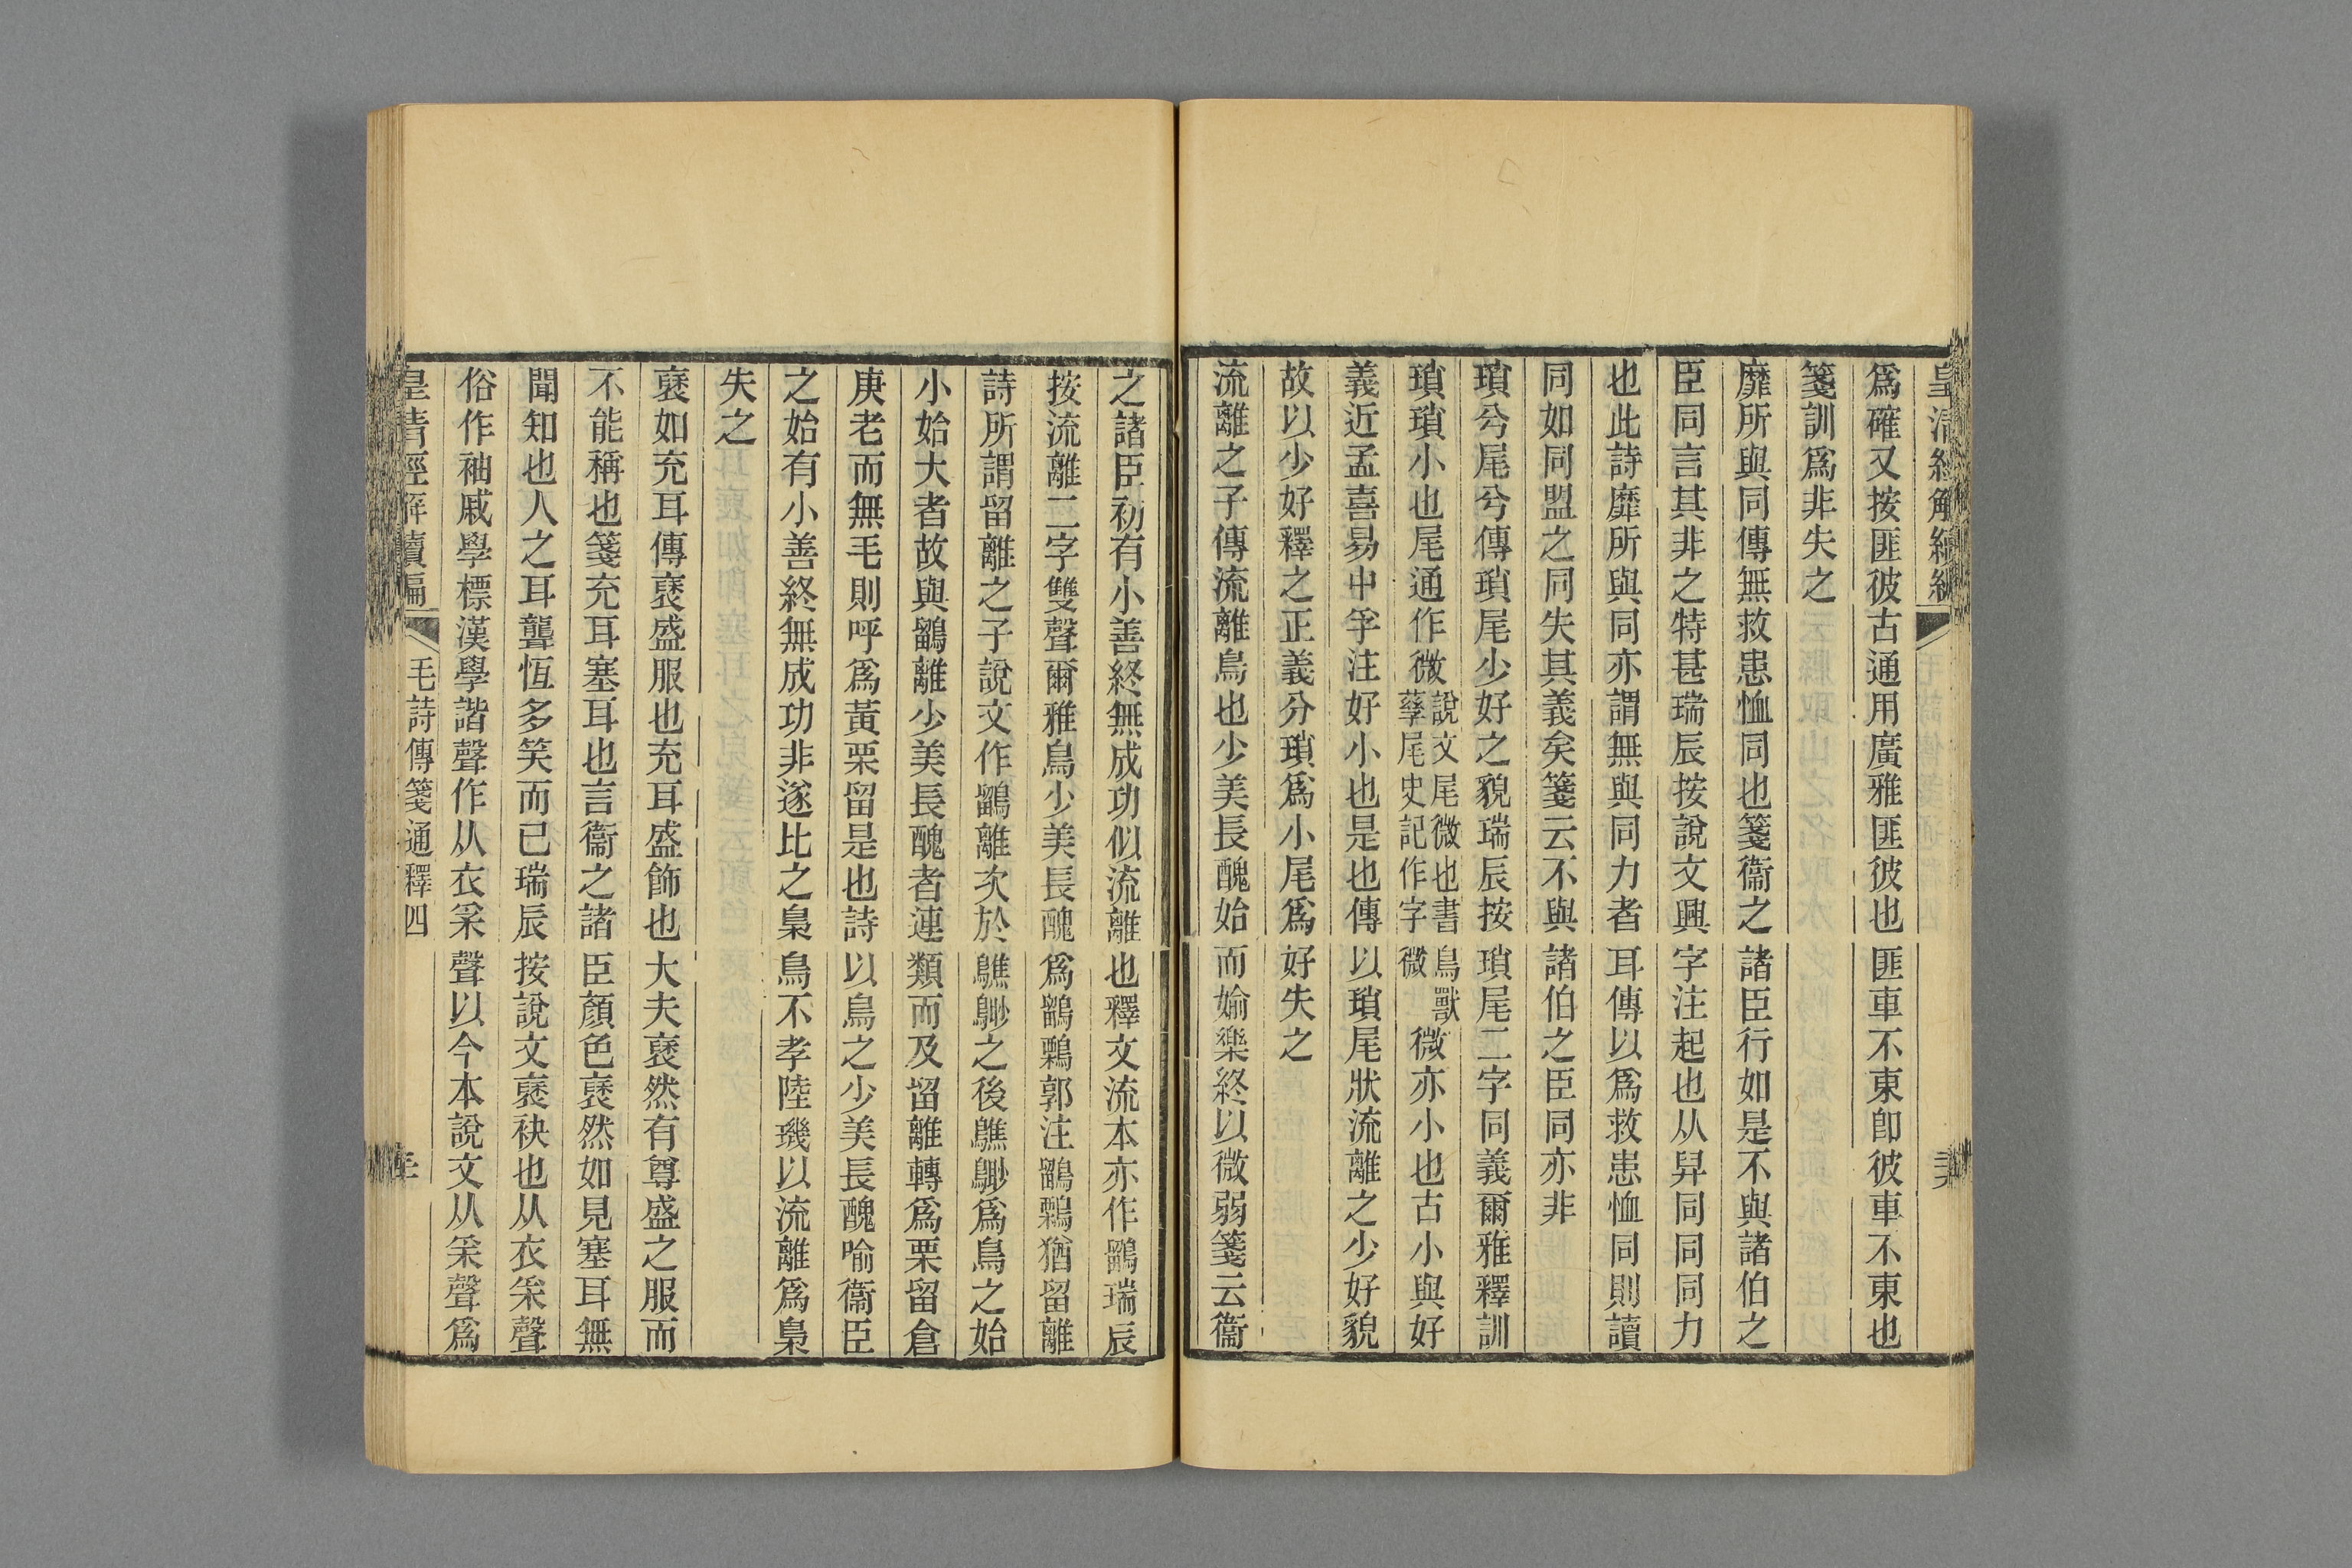 皇清經解續編
爲確又按匪彼古通用廣雅匪彼也匪車不東卽彼車不東也
箋訓爲非失之
靡所與同傳無救患恤同也箋衞之諸臣行如是不與諸伯之
臣同言其非之特甚瑞辰按說文興字注起也从舁同同同力
也此詩靡所與同亦謂無與同力者耳傳以爲救患恤同則讀
同如同盟之同失其義矣箋云不與諸伯之臣同亦非
瑣兮尾兮傳瑣尾少好之貌瑞辰按瑣尾二字同義爾雅釋訓
瑣瑣小也尾通作微說文尾微也書鳥獸孳尾史記作字微微亦小也古小與好
義近孟喜易中孚注好小也是也傳以瑣尾狀流離之少好貌
故以少好釋之正義分瑣爲小尾爲好失之
流離之子傳流離鳥也少美長醜始而愉樂終以微弱箋云衞
之諸臣初有小善終無成功似流離也釋文流本亦作鶹瑞辰
按流離二字雙聲爾雅鳥少美長醜爲鶹鷅郭注鶹鷅猶留離
詩所謂留離之子說文作鶹離次於鷦䳟之後鷦䳟爲鳥之始
小始大者故與鶹離少美長醜者連類而及留離轉爲栗留倉
庚老而無毛則呼爲黃栗留是也詩以鳥之少美長醜喻衞臣
之始有小善終無成功非遂比之梟鳥不孝陸璣以流離爲梟
失之
褎如充耳傳褎盛服也充耳盛飾也大夫褎然有尊盛之服而
不能稱也箋充耳塞耳也言衞之諸臣顏色褎然如見塞耳無
聞知也人之耳聾恆多笑而已瑞辰按說文褎袂也从衣采聲
俗作袖戚學標漢學諧聲作从衣采聲以今本說文从采聲爲
皇清經解續編 毛詩傳箋通釋四